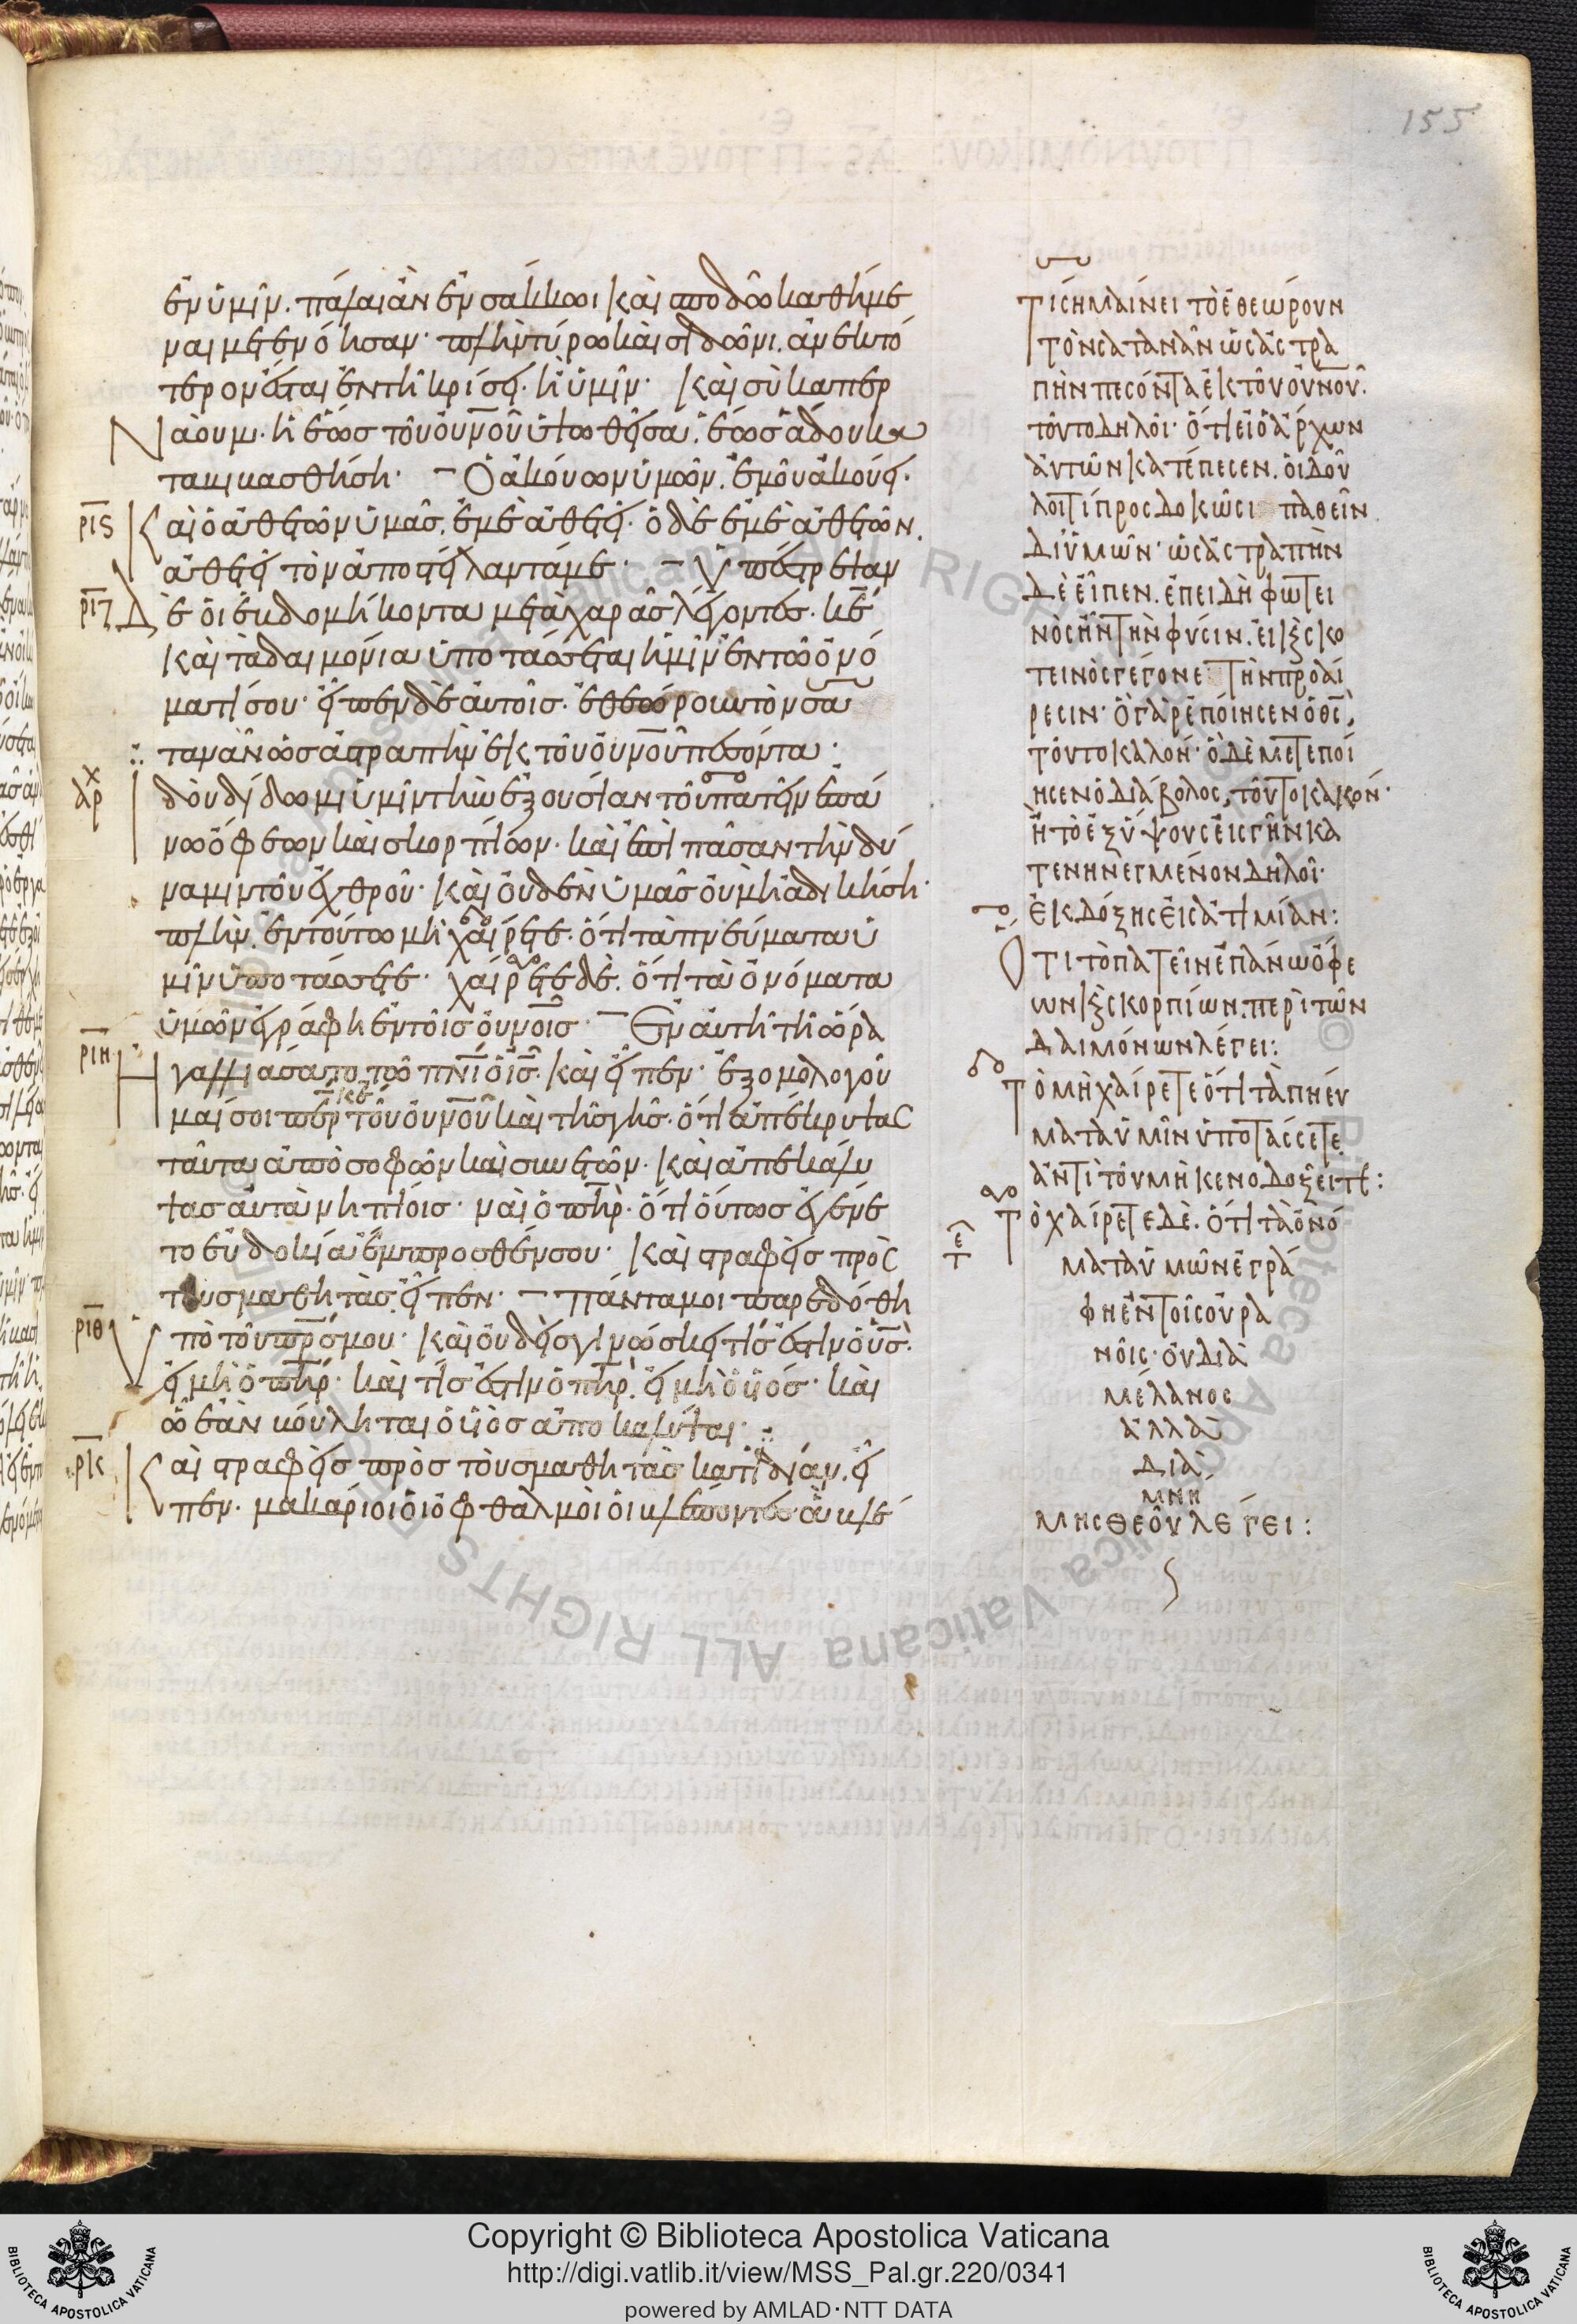 155
ἐν ὑμῖν. πάλαι ἂν ἐν σάκκωι καὶ σποδῶ καθήμε
ναι μετενόησαν· πλὴν τύρω καὶ σιδῶνι. ἀνεκτό
τερον ἔσται ἐν τῆ κρίσει. ἢ ὑμῖν· Καὶ σὺ καπερ
Ναουμ· ἡ ἕως τοῦ οὐνοῦ ὑψωθεῖσα. ἕως ἅδου κα
ταβιβασθήση· – Ὁ ἀκούων ὑμῶν. ἐμοῦ ἀκούει.
ρις Καὶ ὁ ἀθετῶν ὑμᾶς. ἐμὲ ἀθετεῖ. ὁ δὲ ἐμὲ ἀθετῶν.
ἀθετεῖ τὸν ἀποστείλαντά με· – Ὑπέστρεψαν
ριζ Δὲ οἱ ἑβδομήκοντα μετὰ χαρᾶς λέγοντες. κε
καὶ τὰ δαιμόνια ὑποτάσσεται ἡμῖν ἐν τῶ ὀνό
ματί σου· εἶπεν δὲ αὐτοῖς. ἐθεώρουν τὸν σα
τανᾶν ὡς ἀστραπὴν ἐκ τοῦ οὐνοῦ πεσόντα:
δοὺ δίδωμι ὑμῖν τὴν ἐξουσίαν τοῦ πατεῖν ἐπά
νω ὄφεων καὶ σκορπίων. καὶ ἐπὶ πᾶσαν τὴν δύ
ναμιν τοῦ ἐχθροῦ· καὶ οὐδὲν ὑμᾶς οὐ μὴ ἀδικήση·
πλὴν. ἐν τούτω μὴ χαίρετε. ὅτι τὰ πνεύματα ὑ
μῖν ὑποτάσσεται. χαίρετε δὲ. ὅτι τὰ ὀνόματα
ὑμῶν ἐγράφη ἐν τοῖς οὐνοις – Ἐν αὐτῆ τῆ ὥρα
ριη Ἠγαλλιάσατο τῶ πνι ὁ ις. καὶ εἶπεν· ἐξομολογοῦ
κε
μαί σοι περ τοῦ οὐνοῦ καὶ τῆς γῆς. ὅτι ἀπέκρυψας
ταῦτα ἀπὸ σοφῶν καὶ συνετῶν. καὶ ἀπεκάλυ
ψας αὐτὰ νηπίοις· ναὶ ὁ πηρ. ὅτι οὕτως ἐγένε
το εὐδοκία ἔμπροσθέν σου· Καὶ στραφεὶς πρὸς
τοὺς μαθητὰς. εἶπεν. – Πάντα μοι παρεδόθη
ριθ Ὑπὸ τοῦ πρς μου· Καὶ οὐδεὶς γινώσκει τίς ἐστιν ὁ υς.
εἰ μὴ ὁ πηρ· καὶ τίς ἐστιν ὁ πηρ. εἰ μὴ ὁ υἱός· καὶ
ὧ ἐὰν βούληται ὁ υἱὸς ἀποκαλύψαι:
ρκ Καὶ στραφεὶς πρὸς τοὺς μαθητὰς κατιδίαν. εἶ
πεν. μακάριοι οἱ ὀφθαλμοὶ οἱ βλέποντες ἃ βλέ
Τί σημαίνει τὸ ἐθεώρουν
τὸν σατανᾶν ὡς ἀστρα
πὴν πεσόντα ἐκ τοῦ οὐνοῦ.
τοῦτο δηλοῖ· ὅτι εἰ ὁ ἄρχων
αὐτῶν κατέπεσεν. οἱ δοῦ
λοι τί προσδοκῶσι παθεῖν
δι ὑμῶν· ὡς ἀστραπὴν
δὲ εἶπεν. ἐπειδὴ φωτει
νὸς ἦν τὴν φύσιν. εἰ καὶ σκο
τεινὸς γέγονε τὴν προαί
ρεσιν· ὃ γὰρ ἐποίησεν ὁ θς,
τοῦτο καλόν· ὃ δὲ μετεποί
ησεν ὁ διάβολος, τοῦτο κακόν·
ἢ τὸ ἐξ ὕψους εἰς γῆν κα
τενηνεγμένον δηλοῖ·
ἐκ δόξης εἰς ἀτιμίαν:
Ὅτι τὸ πατεῖν ἐπάνω ὄφε
ων καὶ σκορπίων. περὶ τῶν
δαιμόνων λέγει:
Τὸ μὴ χαίρετε ὅτι τὰ πνεύ
ματα ὑμῖν ὑποτάσσετε
ἀντὶ τοῦ μὴ κενοδοξεῖτε:
Τὸ χαίρετε δὲ. ὅτι τὰ ὀνό
ματα ὑμῶν ἐγρά
φη ἐν τοῖς οὐρα
νοῖς· οὐ διὰ
μέλανος
ἀλλὰ
διὰ
μνη
μης θεοῦ λέγει:
Copyright © Biblioteca Apostolica Vaticana
http://digi.vatlib.it/view/MSS_Pal.gr.220/0341
powered by AMLAD·NTT DATA